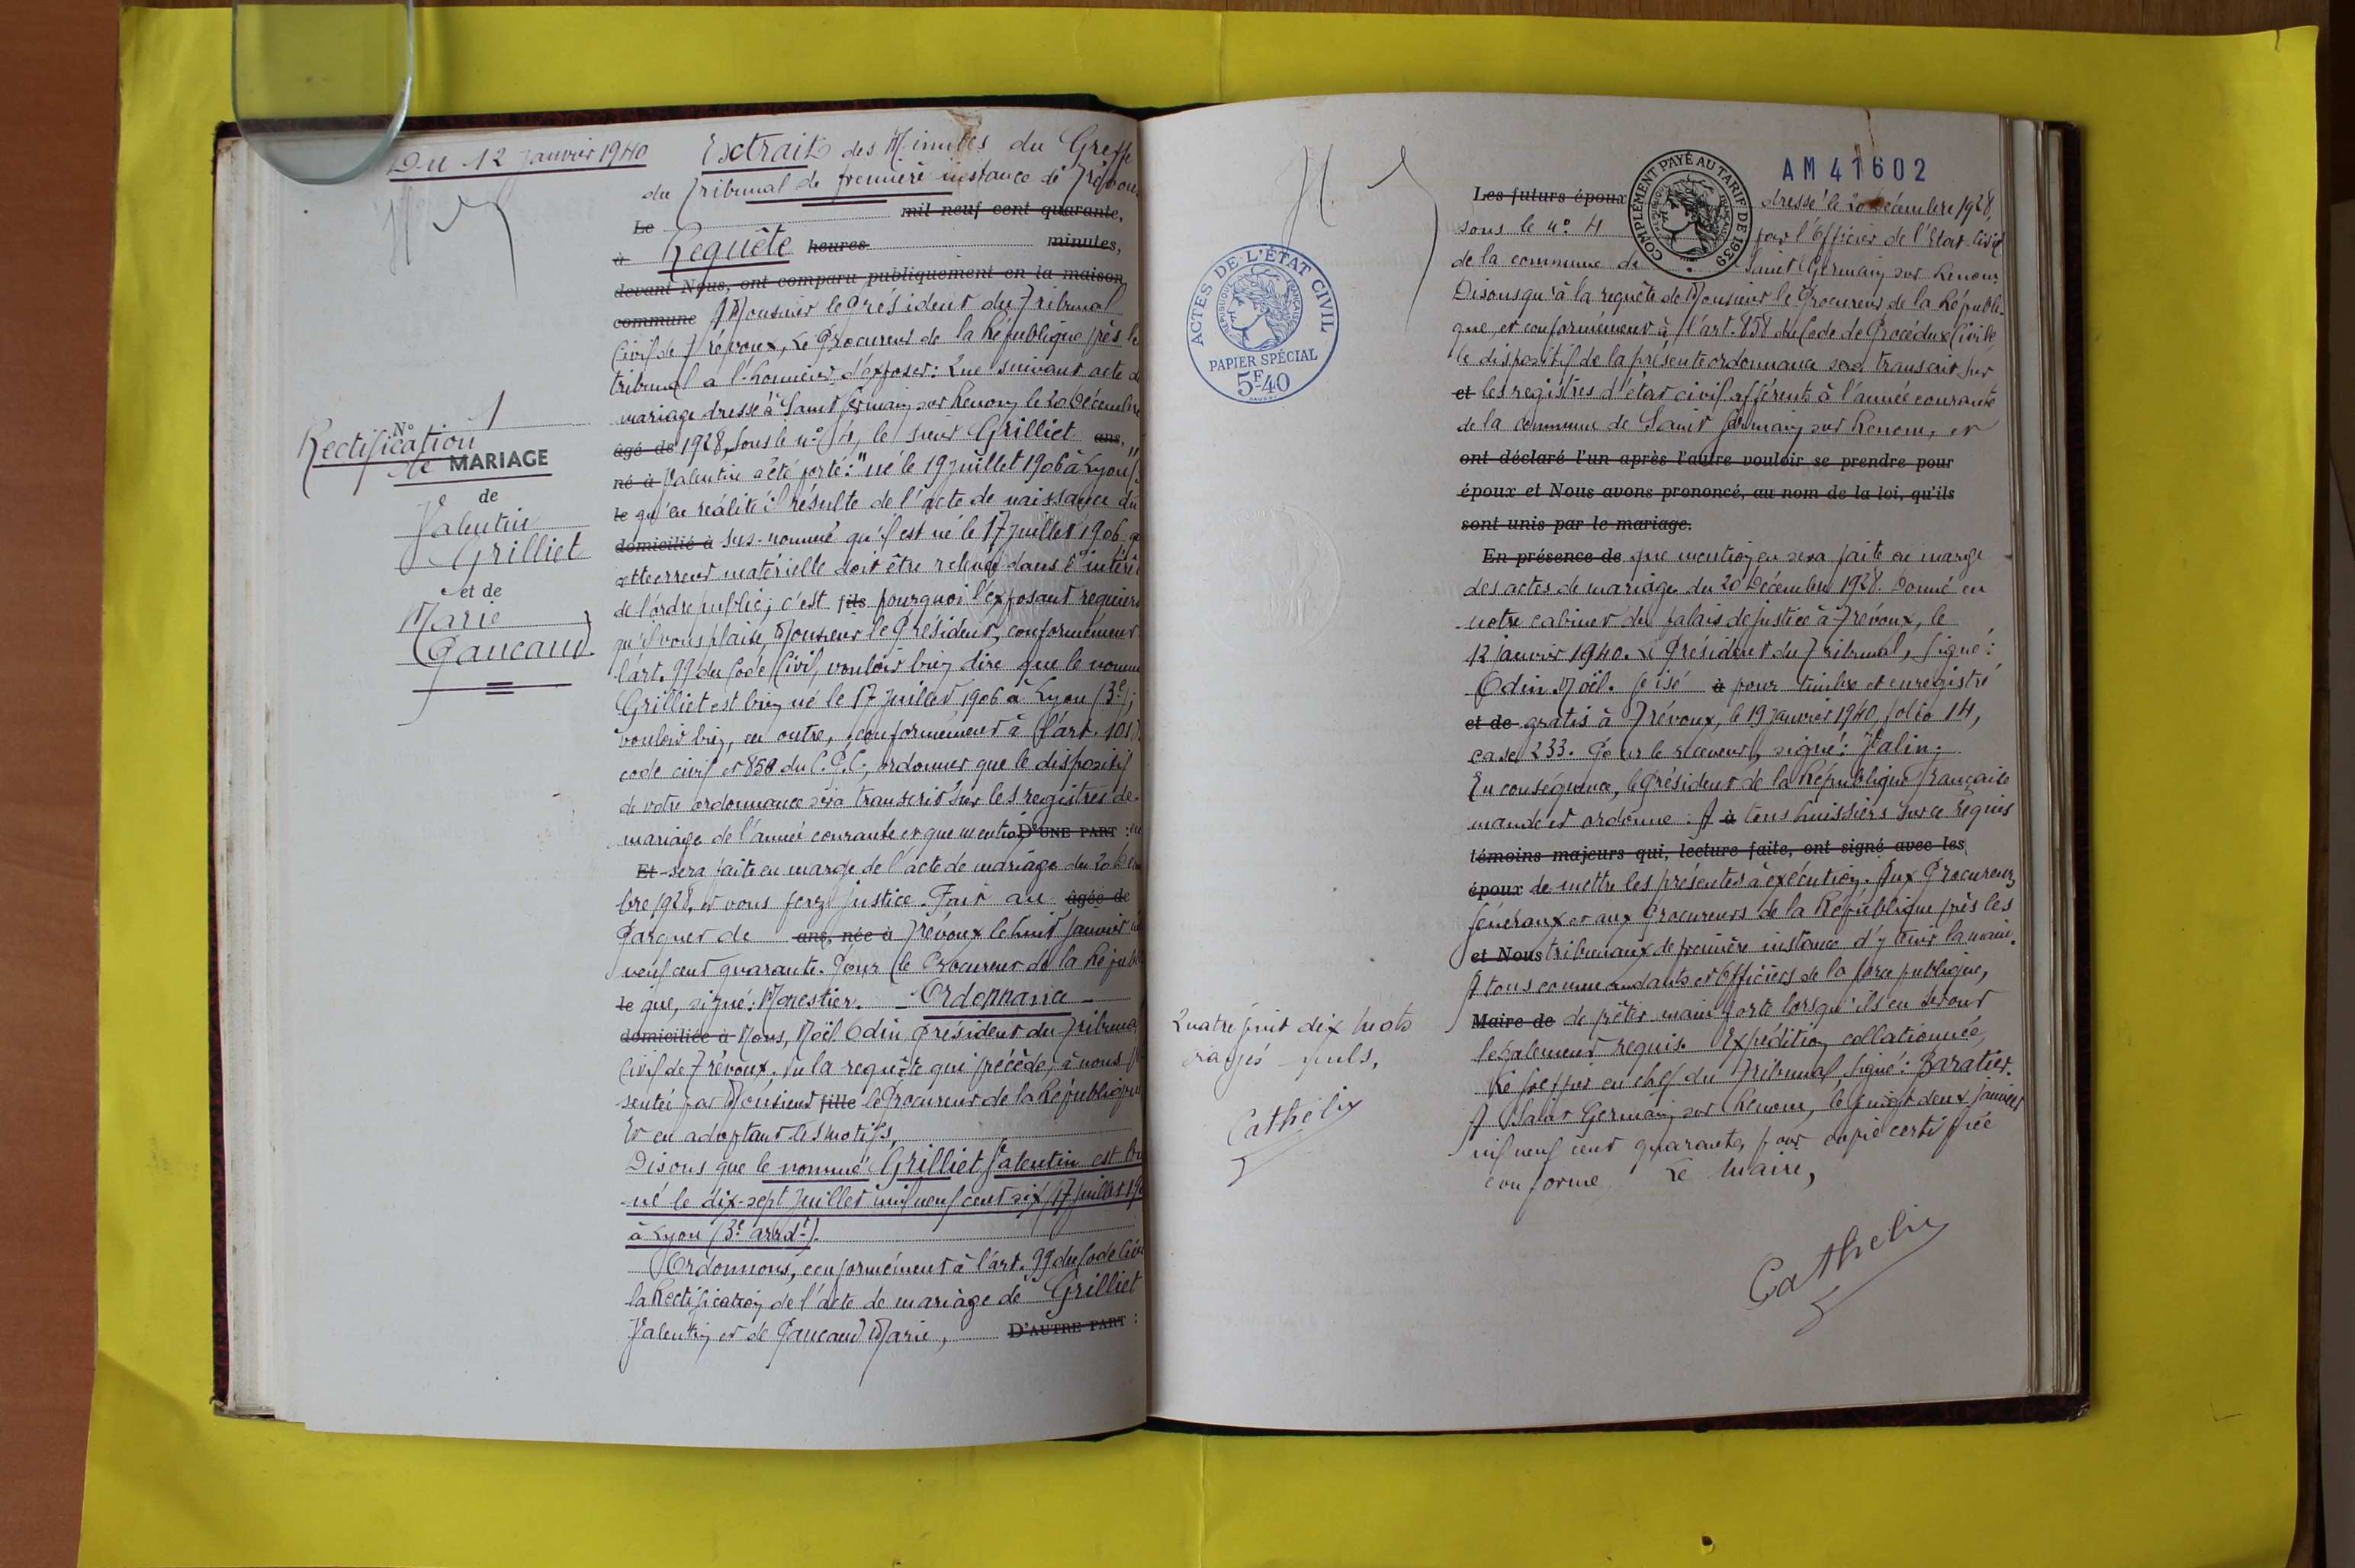 Du 12 Janvier 1940
N° 1
Rectification
de MARIAGE
de
Valentin
Grilliet
et de
Marie
Pancaud
Extrait des Minutes du Greffe
du Tribunal de première instance de Trévoux
Le mil neuf cent quarante,
à Requête heures minutes,
devant Nous, ont comparu publiquement en la maison
commune A Monsieur le Président du Tribunal
Civil de Trévoux, Le Procureur de la République près le
tribunal a l'honneur d'exposer: Que suivant acte de
mariage dressé à Saint Germain sur Renom le 20 Décembre
âgé de 1928, sous le n° 4, le sieur Grilliet ans,
né à Valentin a été porté: "né le 19 juillet 1906 à Lyon",
le qu'en réalité il résulte de l'acte de naissance du
domicilié à sus-nommé qu'il est né le 17 juillet 1906, que
cette erreur matérielle doit être relevée dans l'intérêt
de l'ordre public; c'est fils pourquoi l'exposant requiert
qu'il vous plaise, Monsieur le Président, conformément
l'art. 99 du Code Civil, vouloir bien dire que le nommé
Grilliet est bien né le 17 juillet 1906 à Lyon (3e);
vouloir bien, en outre, conformément à l'art. 101
code civil et 858 du C.P.C., ordonner que le dispositif
de votre ordonnance sera transcrit sur les registres de
mariage de l'année courante et que mention D'UNE PART : en
Et sera faite en marge de l'acte de mariage du 20 Décem
bre 1928, et vous ferez justice. Fait au âgée de
Parquet de ans, née à Trévoux le huit janvier mil
neuf cent quarante. Pour le Procureur de la Républi
le que, signé: Monestier. — Ordonnance —
domiciliée à Nous, Noël Odin, Président du Tribunal
Civil de Trévoux, Vu la requête qui précède, à nous pré
sentée par Monsieur fille le Procureur de la République
Et en adoptant les motifs,
Disons que le nommé Grilliet Valentin est bien
né le dix-sept Juillet mil neuf cent six (17 juillet 190
à Lyon (3e arrdt).
Ordonnons, conformément à l'art. 99 du Code Civil
la Rectification de l'acte de mariage de Grilliet
Valentin et de Pancaud Marie, D'AUTRE PART :
ACTES DE L'ÉTAT CIVIL
RÉPUBLIQUE FRANÇAISE
PAPIER SPÉCIAL
5F40
Quatre vingt dix mots
rayés nuls,
Cathelin
AM 41602
COMPLÉMENT PAYÉ AU TARIF DE 1939
Les futurs époux dressé le 20 Décembre 1928,
sous le n° 4 par l'officier de l'Etat-Civil
de la commune de Saint Germain sur Renom.
Disons qu'à la requête de Monsieur le Procureur de la Républi-
que, et conformément à l'art. 858 du Code de Procédure Civile
le dispositif de la présente ordonnance sera transcrit sur
et les registres d'état civil afférents à l'année courante
de la commune de Saint Germain sur Renom, et
ont déclaré l'un après l'autre vouloir se prendre pour
époux et Nous avons prononcé, au nom de la loi, qu'ils
sont unis par le mariage.
En présence de que mention en sera faite en marge
des actes de mariage du 20 Décembre 1928. Donné en
notre cabinet du palais de justice à Trévoux, le
12 janvier 1940. Le Président du Tribunal, signé:
Odin Noël. Visé à pour timbre et enregistré
et de gratis à Trévoux, le 19 janvier 1940, folio 14,
case 233. Pour le receveur, signé: Valin.
En conséquence, le Président de la République Française
mande et ordonne: A à tous huissiers sur ce requis
témoins majeurs qui, lecture faite, ont signé avec les
époux de mettre les présentes à exécution. Aux Procureurs
Généraux et aux Procureurs de la République près les
et Nous tribunaux de première instance d'y tenir la main.
A tous commandants et Officiers de la force publique,
Maire de de prêter main forte lorsqu'ils en seront
légalement requis. Expédition collationnée,
Le Greffier en chef du Tribunal signé: Baratier.
A Saint Germain sur Renom, le vingt deux janvier
mil neuf cent quarante, pour copie certifiée
conforme Le Maire,
Cathelin